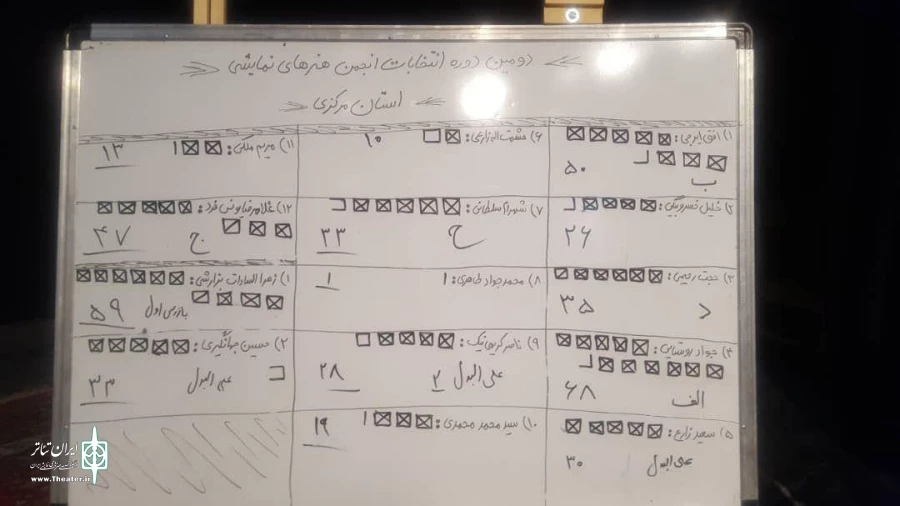 دومین دوره انتخابات انجمن هنرهای نمایشی
استان مرکزی
۱) افق ایرجی:
ب ۵۰
۲) خلیل خسروبیگی:
۲۶
۳) حجت رحیمی:
د ۳۵
۴) جواد روستایی:
الف ۶۸
۵) سعید زارع:
علی البدل ۳۰
۶) حشمت اله زارعی: ۱۰
۷) شهرام سلطانی:
ح ۳۳
۸) محمدجواد طاهری:
۱
۹) ناصر کریمی نیک:
علی البدل ۲ ۲۸
۱۰) سید محمد محمدی:
۱۹
۱۱) مریم ملکی: ۱۳
۱۲) غلامرضا یونس فرد:
ج ۴۷
۱) زهرا السادات
بازرس اول ۵۹
۲) حسین جهانگیری:
علی البدل ۳۳
ایران تئاتر
www.Theater.ir